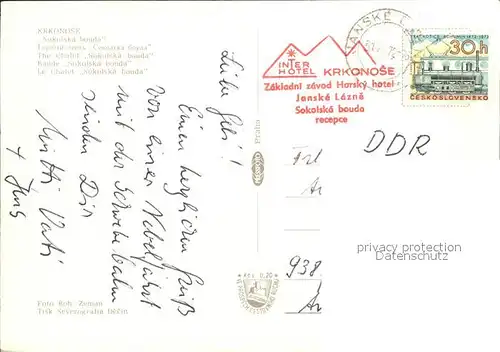 KRKONOŠE
„Sokolská bouda“
The chalet „Sokolská bouda“
Baude „Sokolská bouda“
Le chalet „Sokolská bouda“
Einen herzlichen Gruß
von einer Nebelfahrt
mit der Schwebebahn
senden Dir
Mutti Vati
+
Foto Rob. Zeman
Tisk Severografia Děčín
Praha
ORBIS
INTER
HOTEL KRKONOŠE
Základní závod Horský hotel
Janské Lázně
Sokolská bouda
recepce
JANSKÉ
30h
ČESKOSLOVENSKO
DDR
938
privacy protection
Datenschutz